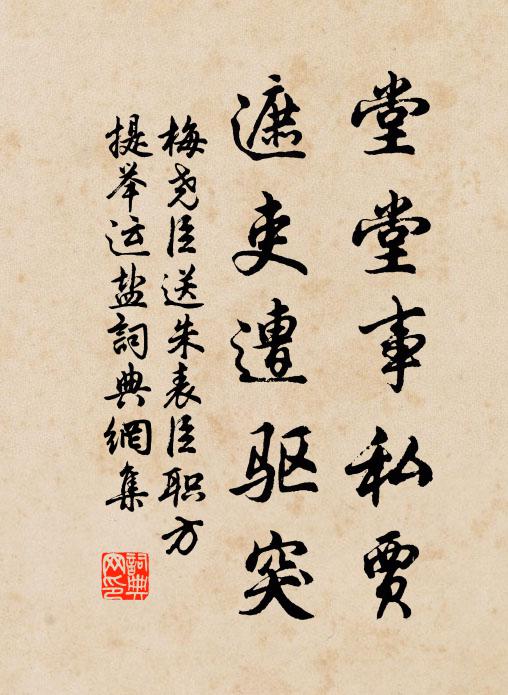 堂堂事私贾
遮吏遭驱突
梅尧臣送朱表臣职方
提举运盐詞典網集
詞典网印